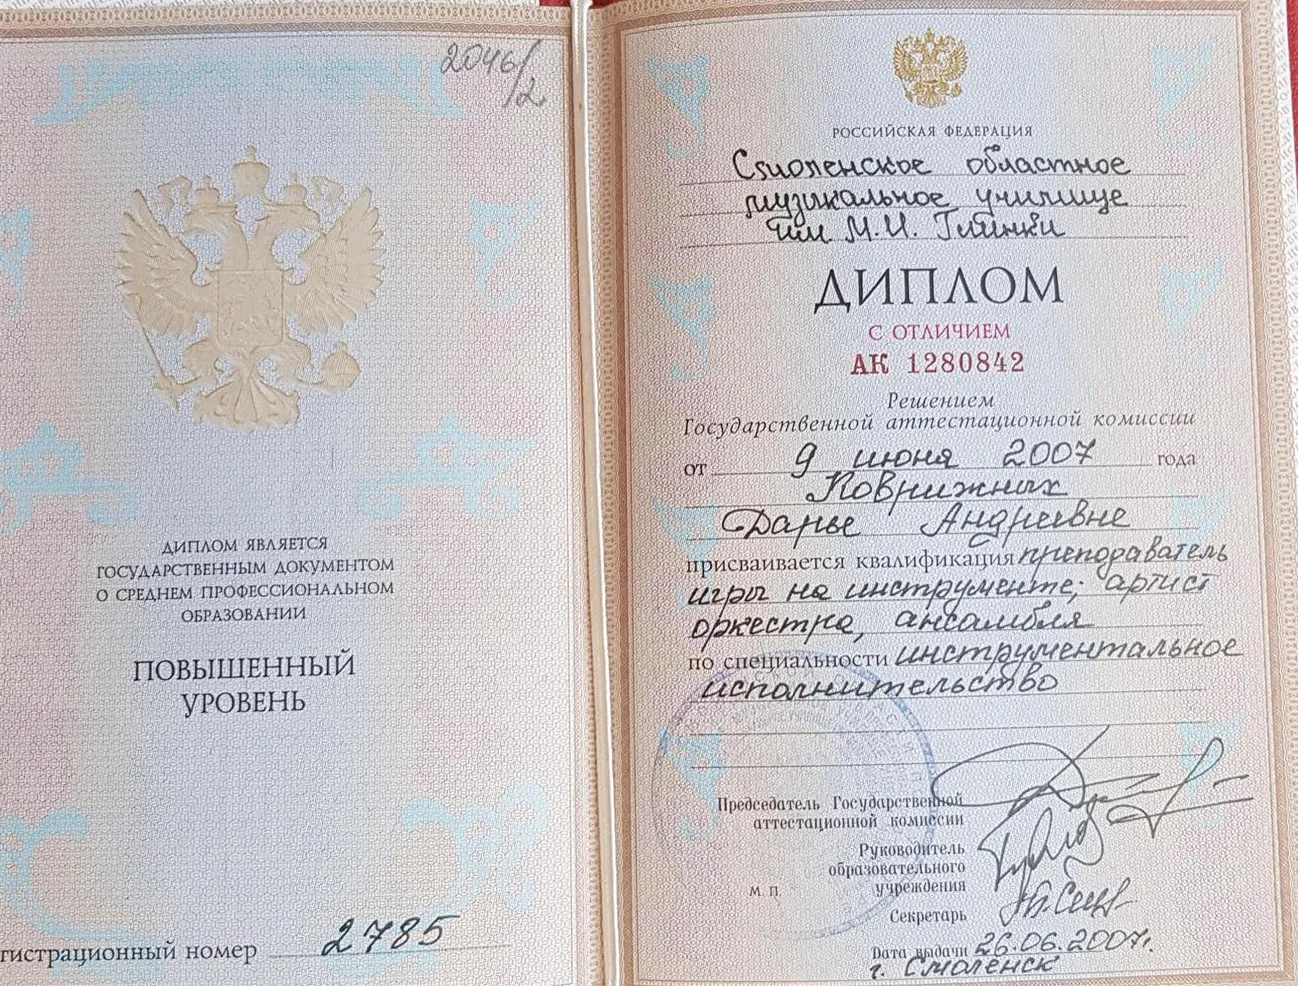 2046/2
ДИПЛОМ ЯВЛЯЕТСЯ
ГОСУДАРСТВЕННЫМ ДОКУМЕНТОМ
О СРЕДНЕМ ПРОФЕССИОНАЛЬНОМ
ОБРАЗОВАНИИ
ПОВЫШЕННЫЙ
УРОВЕНЬ
гистрационный номер 2785
РОССИЙСКАЯ ФЕДЕРАЦИЯ
Смоленское областное
музыкальное училище
им М.И. Глинки
ДИПЛОМ
С ОТЛИЧИЕМ
АК 1280842
Решением
Государственной аттестационной комиссии
от 9 июня 2007 года
Дарье Андреевне
присваивается квалификация преподаватель
игры на инструменте; артист
оркестра, ансамбля
по специальности инструментальное
исполнительство
Председатель Государственной
аттестационной комиссии
Руководитель
образовательного
учреждения
М. П.
Секретарь
Дата выдачи 26.06.2007г.
г. Смоленск